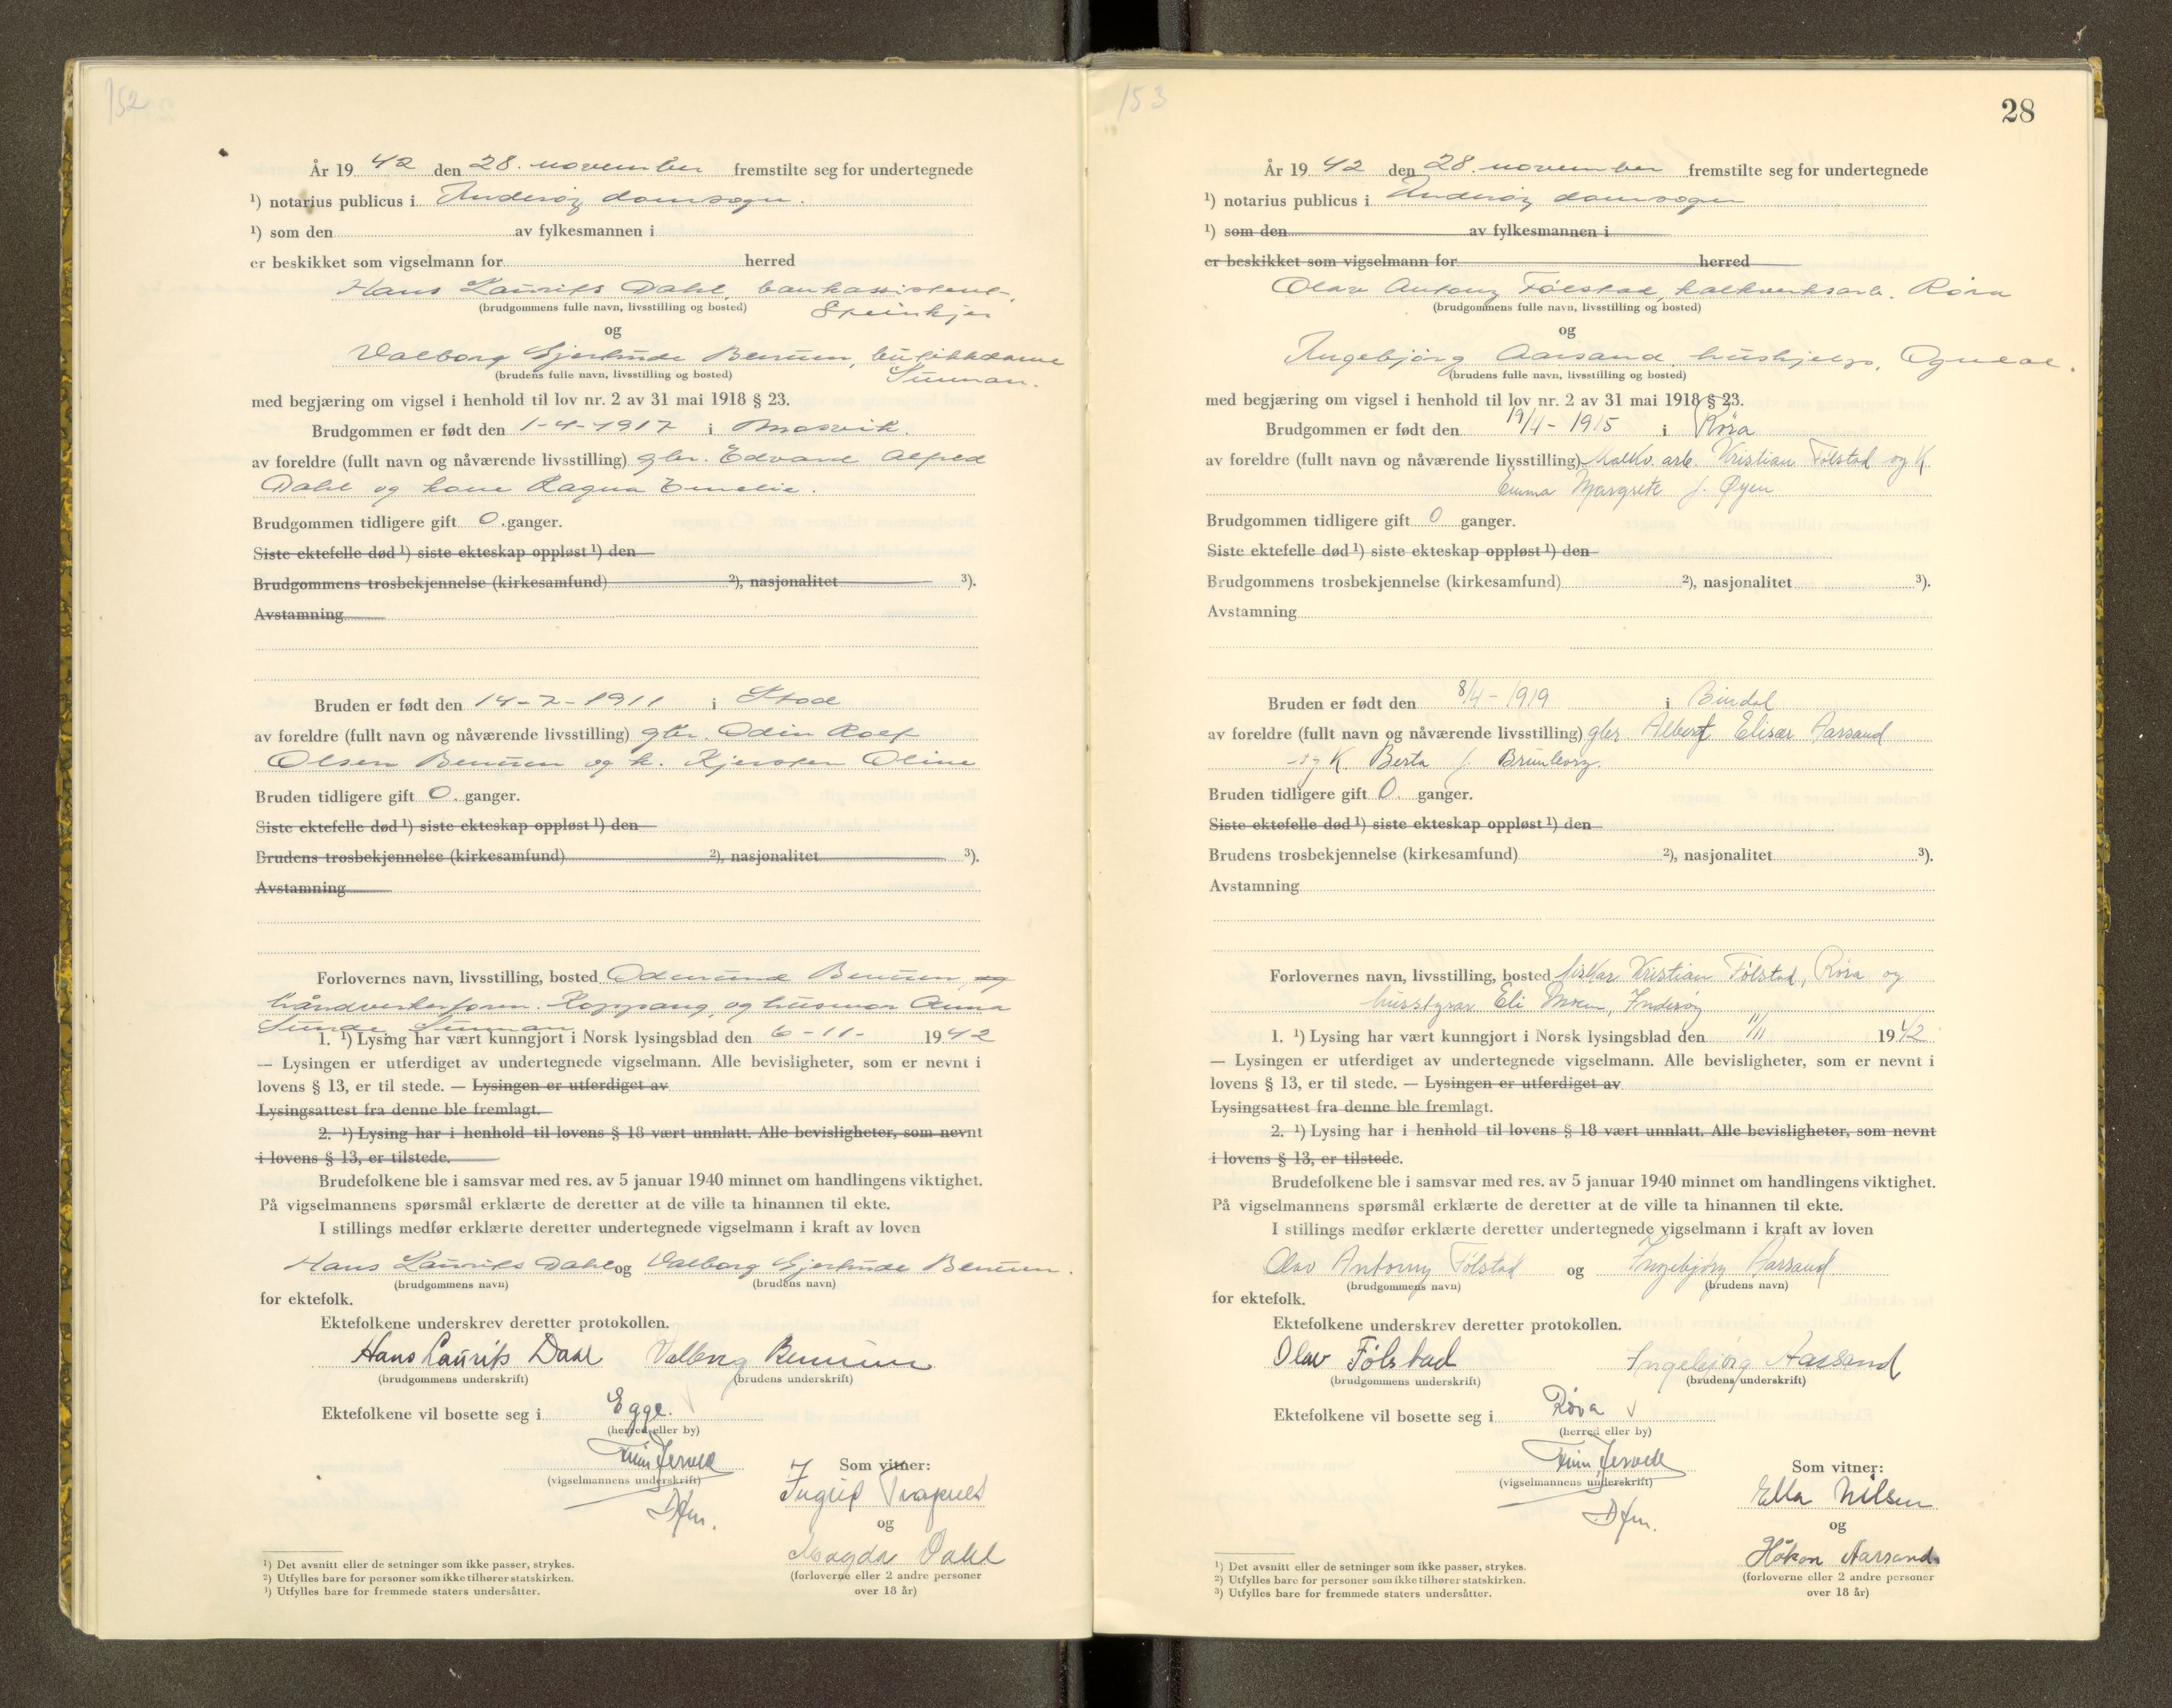 152
År 19 42 den 28. november fremstilte seg for undertegnede
¹) notarius publicus i Inderøy domsogn.
¹) som den av fylkesmannen i
er beskikket som vigselmann for herred
Hans Laurits Dahl, bankassistent,
(brudgommens fulle navn, livsstilling og bosted) Steinkjer
og
Valborg Gjertrude Benum, butikkdame
(brudens fulle navn, livsstilling og bosted) Sunnan.
med begjæring om vigsel i henhold til lov nr. 2 av 31 mai 1918 § 23.
Brudgommen er født den 1-4-1917 i Mosvik.
av foreldre (fullt navn og nåværende livsstilling) gbr. Edvard Alfred
Dahl og kone Ragna Emelie.
Brudgommen tidligere gift 0. ganger.
Siste ektefelle død ¹) siste ekteskap oppløst ¹) den
Brudgommens trosbekjennelse (kirkesamfund) ²), nasjonalitet ³).
Avstamning
Bruden er født den 14-2-1911 i Stod
av foreldre (fullt navn og nåværende livsstilling) gbr. Odin Rolf
Olsen Benum og k. Kjersten Oline
Bruden tidligere gift 0. ganger.
Siste ektefelle død ¹) siste ekteskap oppløst ¹) den
Brudens trosbekjennelse (kirkesamfund) ²), nasjonalitet ³).
Avstamning
Forlovernes navn, livsstilling, bosted Odmund Benum, og
håndverkerform. Koppang, og husmor Anna
Sunde, Sunnan
1. ¹) Lysing har vært kunngjort i Norsk lysingsblad den 6-11- 1942
— Lysingen er utferdiget av undertegnede vigselmann. Alle bevisligheter, som er nevnt i
lovens § 13, er til stede. — Lysingen er utferdiget av
Lysingsattest fra denne ble fremlagt.
2. ¹) Lysing har i henhold til lovens § 18 vært unnlatt. Alle bevisligheter, som nevnt
i lovens § 13, er tilstede.
Brudefolkene ble i samsvar med res. av 5 januar 1940 minnet om handlingens viktighet.
På vigselmannens spørsmål erklærte de deretter at de ville ta hinannen til ekte.
I stillings medfør erklærte deretter undertegnede vigselmann i kraft av loven
Hans Laurits Dahl og Valborg Gjertrude Benum.
(brudgommens navn) (brudens navn)
for ektefolk.
Ektefolkene underskrev deretter protokollen.
Hans Laurits Daal Valborg Benum
(brudgommens underskrift) (brudens underskrift)
Ektefolkene vil bosette seg i Egge.
(herred eller by)
(vigselmannens underskrift)
Dfm.
Som vitner:
Ingrid
og
Magda Dahl
(forloverne eller 2 andre personer
over 18 år)
¹) Det avsnitt eller de setninger som ikke passer, strykes.
²) Utfylles bare for personer som ikke tilhører statskirken.
³) Utfylles bare for fremmede staters undersåtter.
153
28
År 19 42 den 28. november fremstilte seg for undertegnede
¹) notarius publicus i Inderøy domsogn
¹) som den av fylkesmannen i
er beskikket som vigselmann for herred
Olav Antony Følstad, kalkverksarb. Røra
(brudgommens fulle navn, livsstilling og bosted)
og
Ingebjørg Aarsand, hushjelp, Ogndal.
(brudens fulle navn, livsstilling og bosted)
med begjæring om vigsel i henhold til lov nr. 2 av 31 mai 1918 § 23.
Brudgommen er født den 19/4-1915 i Røra
av foreldre (fullt navn og nåværende livsstilling) Kalkv. arb. Kristian Følstad og K.
Emma Margrete f. Øyen
Brudgommen tidligere gift 0 ganger.
Siste ektefelle død ¹) siste ekteskap oppløst ¹) den
Brudgommens trosbekjennelse (kirkesamfund) ²), nasjonalitet ³).
Avstamning
Bruden er født den 8/4-1919 i Bindal
av foreldre (fullt navn og nåværende livsstilling) gbr Albert Elisar Aarsand
og K. Berta f. Brunborg.
Bruden tidligere gift 0. ganger.
Siste ektefelle død ¹) siste ekteskap oppløst ¹) den
Brudens trosbekjennelse (kirkesamfund) ²), nasjonalitet ³).
Avstamning
Forlovernes navn, livsstilling, bosted fisker Kristian Følstad, Røra og
husstyrer Eli Inderøy
1. ¹) Lysing har vært kunngjort i Norsk lysingsblad den 11/11 1942
— Lysingen er utferdiget av undertegnede vigselmann. Alle bevisligheter, som er nevnt i
lovens § 13, er til stede. — Lysingen er utferdiget av
Lysingsattest fra denne ble fremlagt.
2. ¹) Lysing har i henhold til lovens § 18 vært unnlatt. Alle bevisligheter, som nevnt
i lovens § 13, er tilstede.
Brudefolkene ble i samsvar med res. av 5 januar 1940 minnet om handlingens viktighet.
På vigselmannens spørsmål erklærte de deretter at de ville ta hinannen til ekte.
I stillings medfør erklærte deretter undertegnede vigselmann i kraft av loven
Olav Antony Følstad og Ingebjørg Aarsand
(brudgommens navn) (brudens navn)
for ektefolk.
Ektefolkene underskrev deretter protokollen.
Olav Følstad Ingebjørg Aarsand
(brudgommens underskrift) (brudens underskrift)
Ektefolkene vil bosette seg i Røra
(herred eller by)
(vigselmannens underskrift)
Dfm.
Som vitner:
Ella Nilsen
og
Håkon Aarsand
(forloverne eller 2 andre personer
over 18 år)
¹) Det avsnitt eller de setninger som ikke passer, strykes.
²) Utfylles bare for personer som ikke tilhører statskirken.
³) Utfylles bare for fremmede staters undersåtter.